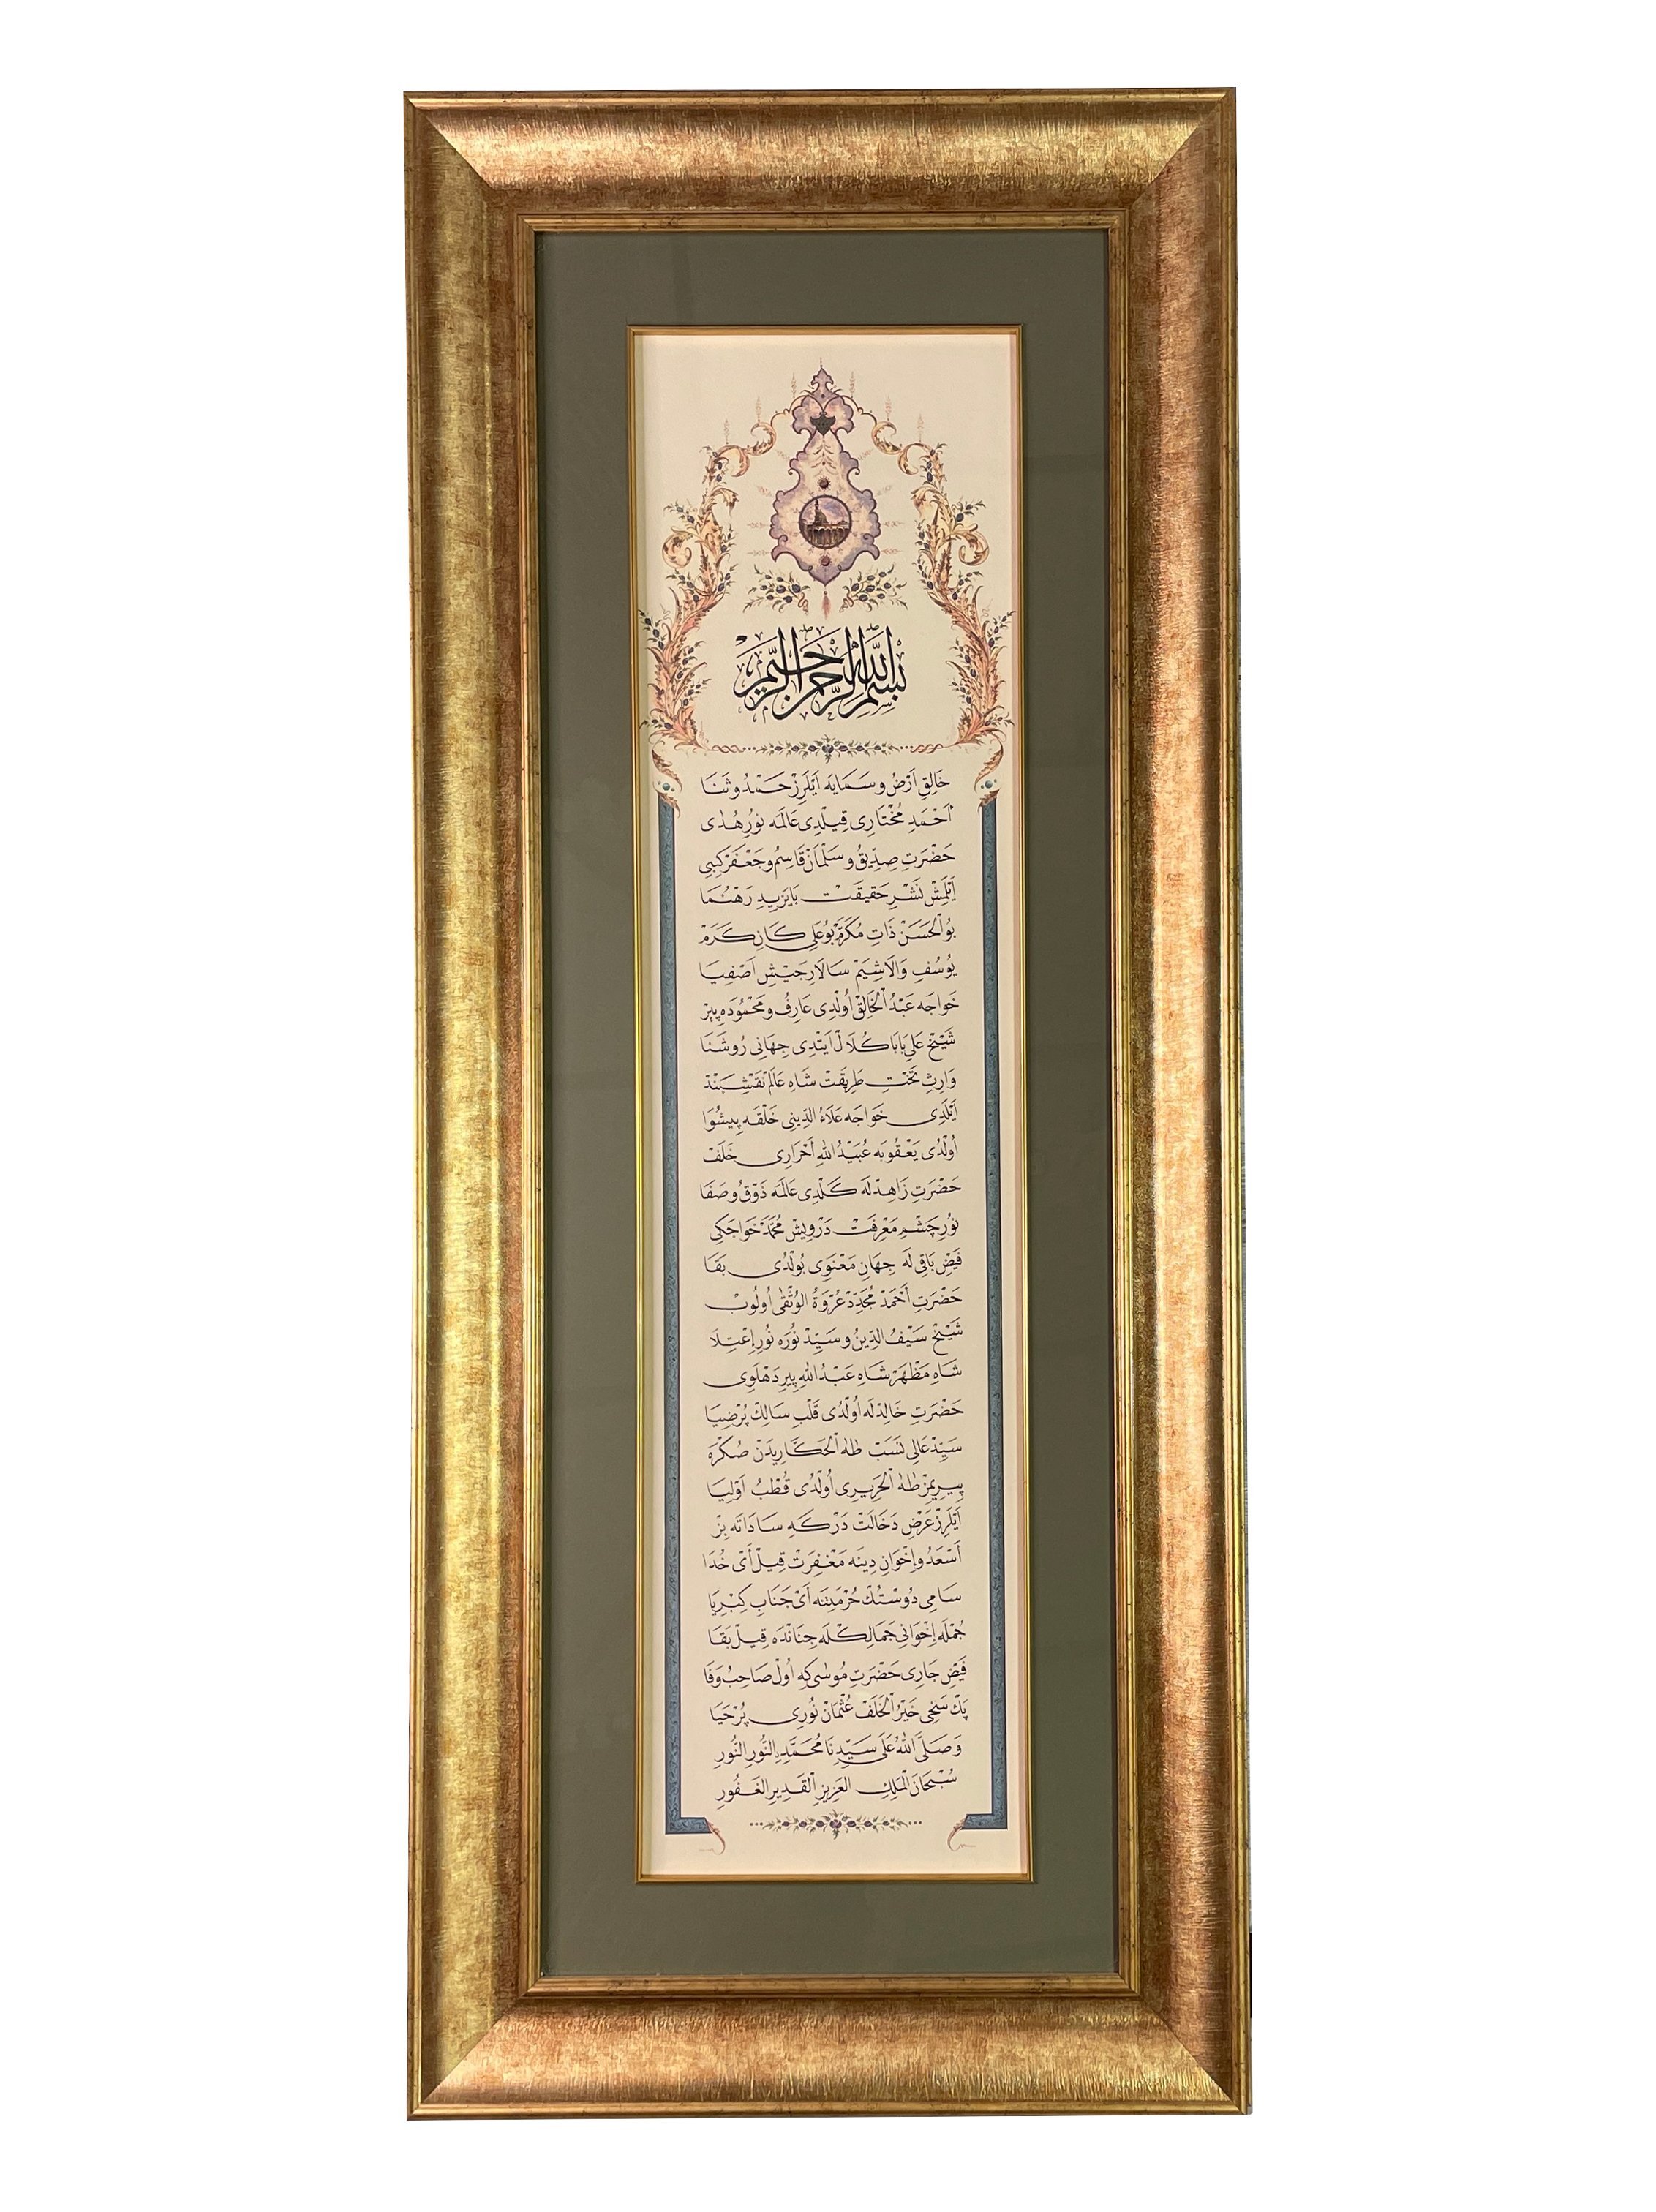 بِسْمِ اللّٰهِ الرَّحْمٰنِ الرَّحِيْمِ
خَالِقِ اَرْضُ و سَمَايَه اَيْلَرِزْ حَمْدُ و ثَنَا
اَحْمَدِ مُخْتَارِى قِيلْدِى عَالَمَه نُورِ هُدٰى
حَضْرَتِ صِدِّيقُ و سَلْمَانْ قَاسِمُ و جَعْفَرْ كِبِى
اَيْلَمِشْ نَشْرِ حَقِيقَتْ بَايَزِيدِ رَهْنُمَا
بُو الْحَسَنْ ذَاتِ مُكَرَّمْ بُوعَلِى كَانِ كَرَمْ
يُوسُفِ وَالَاشِيَمْ سَالَارِ جَيْشِ اَصْفِيَا
خَواجَه عَبْدُ الْخَالِقْ اُولْدِى عَارِفُ و مَحْمُودَه پِيرْ
شَيْخْ عَلِى بَابَا كُلَالْ اَيْتْدِى جِهَانِى رُوشَنَا
وَارِثِ تَخْتِ طَرِيقَتْ شَاهِ عَالَمْ نَقْشِبَنْدْ
اَيْلَدِى خَوَاجَه عَلَاءُ الدِّينِى خَلْقَه پِيشُوَا
اُولْدُى يَعْقُوبَه عُبَيْدُ اللّٰهِ اَحْرَارِى خَلَفْ
حَضْرَتِ زَاهِدْلَه كَلْدِى عَالَمَه ذَوْقُ و صَفَا
نُورِ چَشْمِ مَعْرِفَتْ دَرْوِيشْ مُحَمَّدْ خَوَاجَكِى
فَيْضِ بَاقِى لَه جِهَانِ مَعْنَوِى بُولْدُى بَقَا
حَضْرَتِ اَحْمَدْ مُجَدِّدْ عُرْوَةُ الْوُثْقٰى اُولُوبْ
شَيْخْ سَيْفُ الدِّينُ و سَيِّدْ نُورَه نُورِ اِعْتِلَا
شَاهِ مَظْهَرْ شَاهِ عَبْدُ اللّٰهِ پِيرِ دَهْلَوِى
حَضْرَتِ خَالِدْلَه اُولْدُى قَلْبِ سَالِكْ پُرْضِيَا
سَيِّدْ عَالِى نَسَبْ طٰهٰ الْحَكَّارِيدَنْ صُكْرَه
پِيرِيمِزْ طٰهٰ الْحَرِيرِى اُولْدُى قُطْبُ اَوْلِيَا
اَيْلَرِزْ عَرْضِ دَخَالَتْ دَرْكَهِ سَادَاتَه بِزْ
اَسْعَدُ و اِخْوَانِ دِينَه مَغْفِرَتْ قِيلْ اَىْ خُدَا
سَامِى دُوسْتُكْ حُرْمَتِنَه اَىْ جَنَابِ كِبْرِيَا
جُمْلَه اِخْوَانِى جَمَالِكْلَه جِنَانْدَه قِيلْ بَقَا
فَيْضِ جَارِى حَضْرَتِ مُوسٰى كِه اُولْ صَاحِبْ وَفَا
پَكْ سَخِى خَيْرُ الْخَلَفْ عُثْمَانْ نُورِى پُرْحَيَا
وَصَلَّى اللّٰهُ عَلَى سَيِّدِنَا مُحَمَّدٍ النُّورِ النُّورِ
سُبْحَانَ الْمَلِكِ الْعَزِيزِ الْقَدِيرِ الْغَفُورِ